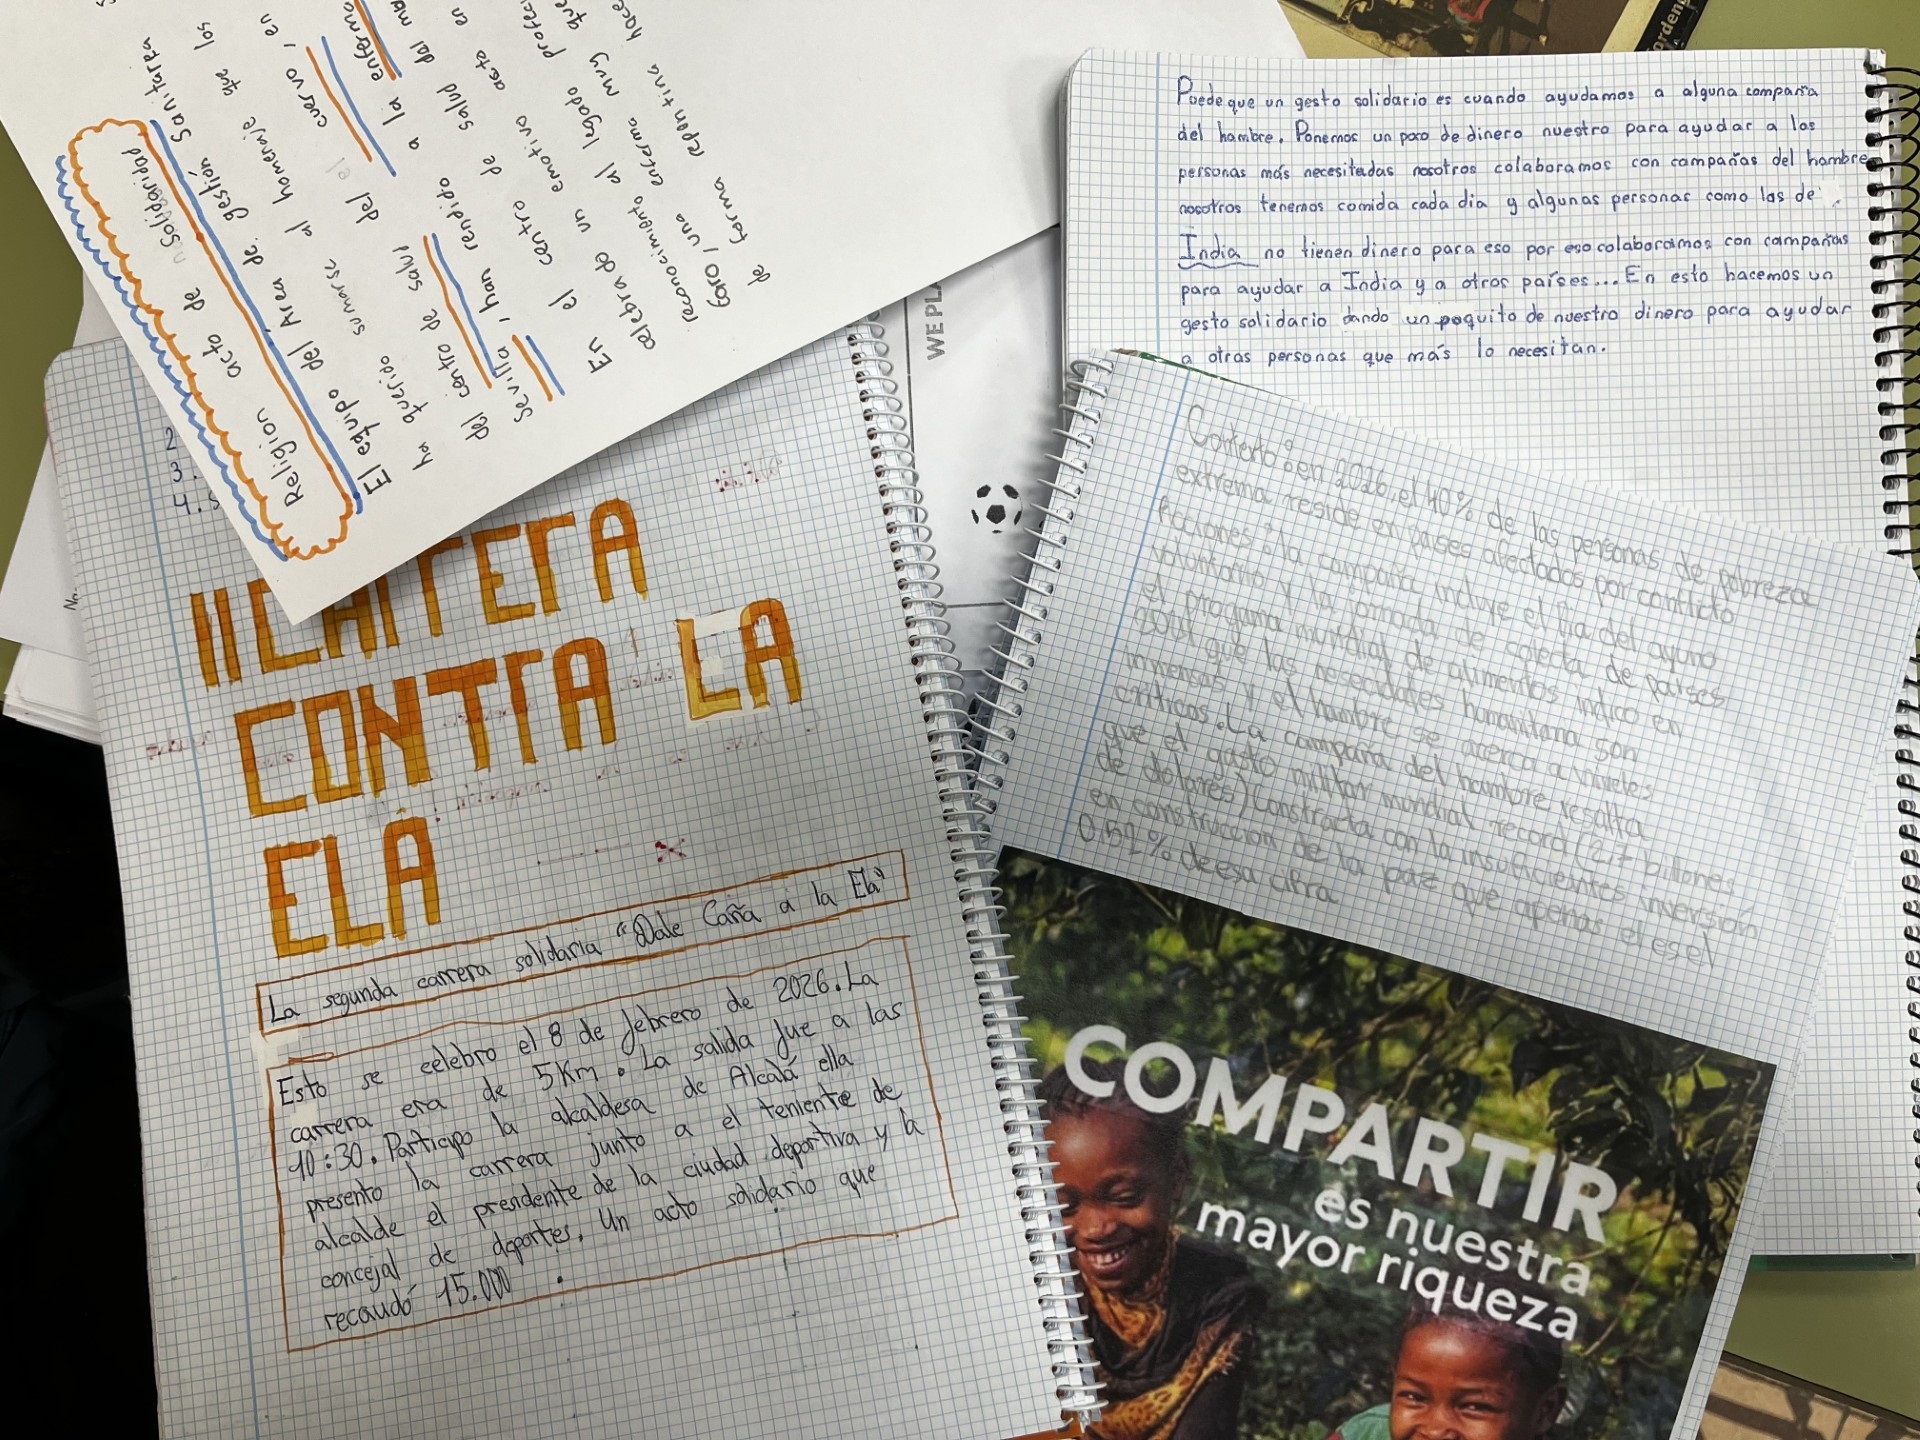 Religion acto de solidaridad
El equipo del Área de gestión Sanitarea
ha querido sumarse al homenaje que los
del centro de salud del el cuervo, en
Sevilla, han rendido a la enferme
En el centro de salud dal ma
celebrado un emotivo acto en
reconocimiento al legado profe
Caro, una enferma muy que
de forma repentina hace
2
3.
4. S
II CARRERA
CONTRA LA
ELA
La segunda carrera solidaria "Dale Caña a la Ela"
Esto se celebro el 8 de febrero de 2026. La
carrera era de 5Km. La salida fue a las
10:30. Participo la alcaldesa de Alcalá ella
presento la carrera junto a el teniente de
alcalde el presidente de la ciudad deportiva y la
concejal de deportes. Un acto solidario que
recaudó 15.000
WE PLA
Puede que un gesto solidario es cuando ayudamos a alguna compañia
del hambre. Ponemos un poco de dinero nuestro para ayudar a las
personas más necesitadas nosotros colaboramos con campañas del hambre
nosotros tenemos comida cada dia y algunas personas como las de
India no tienen dinero para eso por eso colaboramos con campañas
para ayudar a India y a otros países... En esto hacemos un
gesto solidario dando un poquito de nuestro dinero para ayudar
a otras personas que más lo necesitan.
Contexto: en 2026, el 40% de las personas de pobreza
extrema reside en paises afectados por conflicto
Acciones: la campaña incluye el dia del ayuno
voluntario y la jornada de colecta de países
el programa mundial de alimentos indica en
que las nesecidades humanitaria son
inmensas y el hambre se acerca a niveles
criticos. La campaña del hambre resalta
que el gasto militar mundial record (2,7 billones
de dolares) Constracta con la insuficientes inversión
en construccion de la paz que apenas el es el
0,52% de esa cifra
COMPARTIR
es nuestra
mayor riqueza